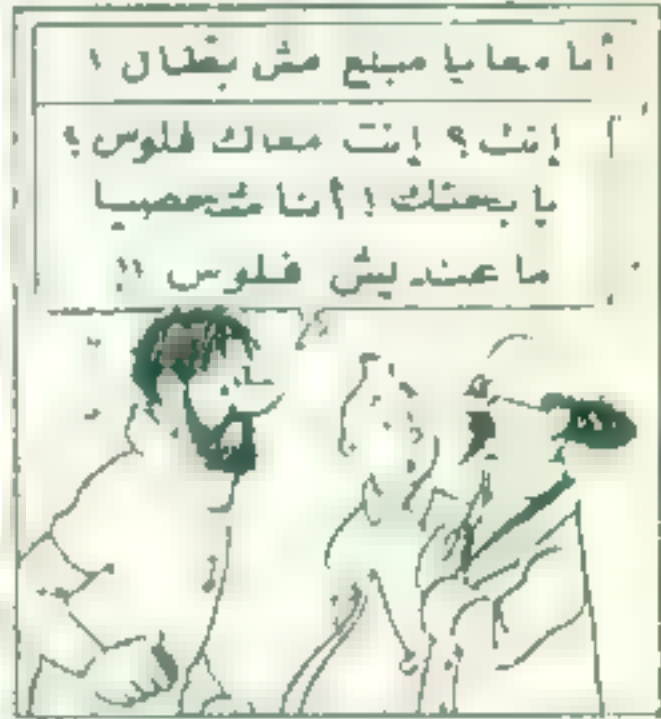 أنا معايا مبلغ مش بطال !
إنت ؟ إنت معاك فلوس ؟
يا بختك ! أنا شخصيا
ما عنديش فلوس !!